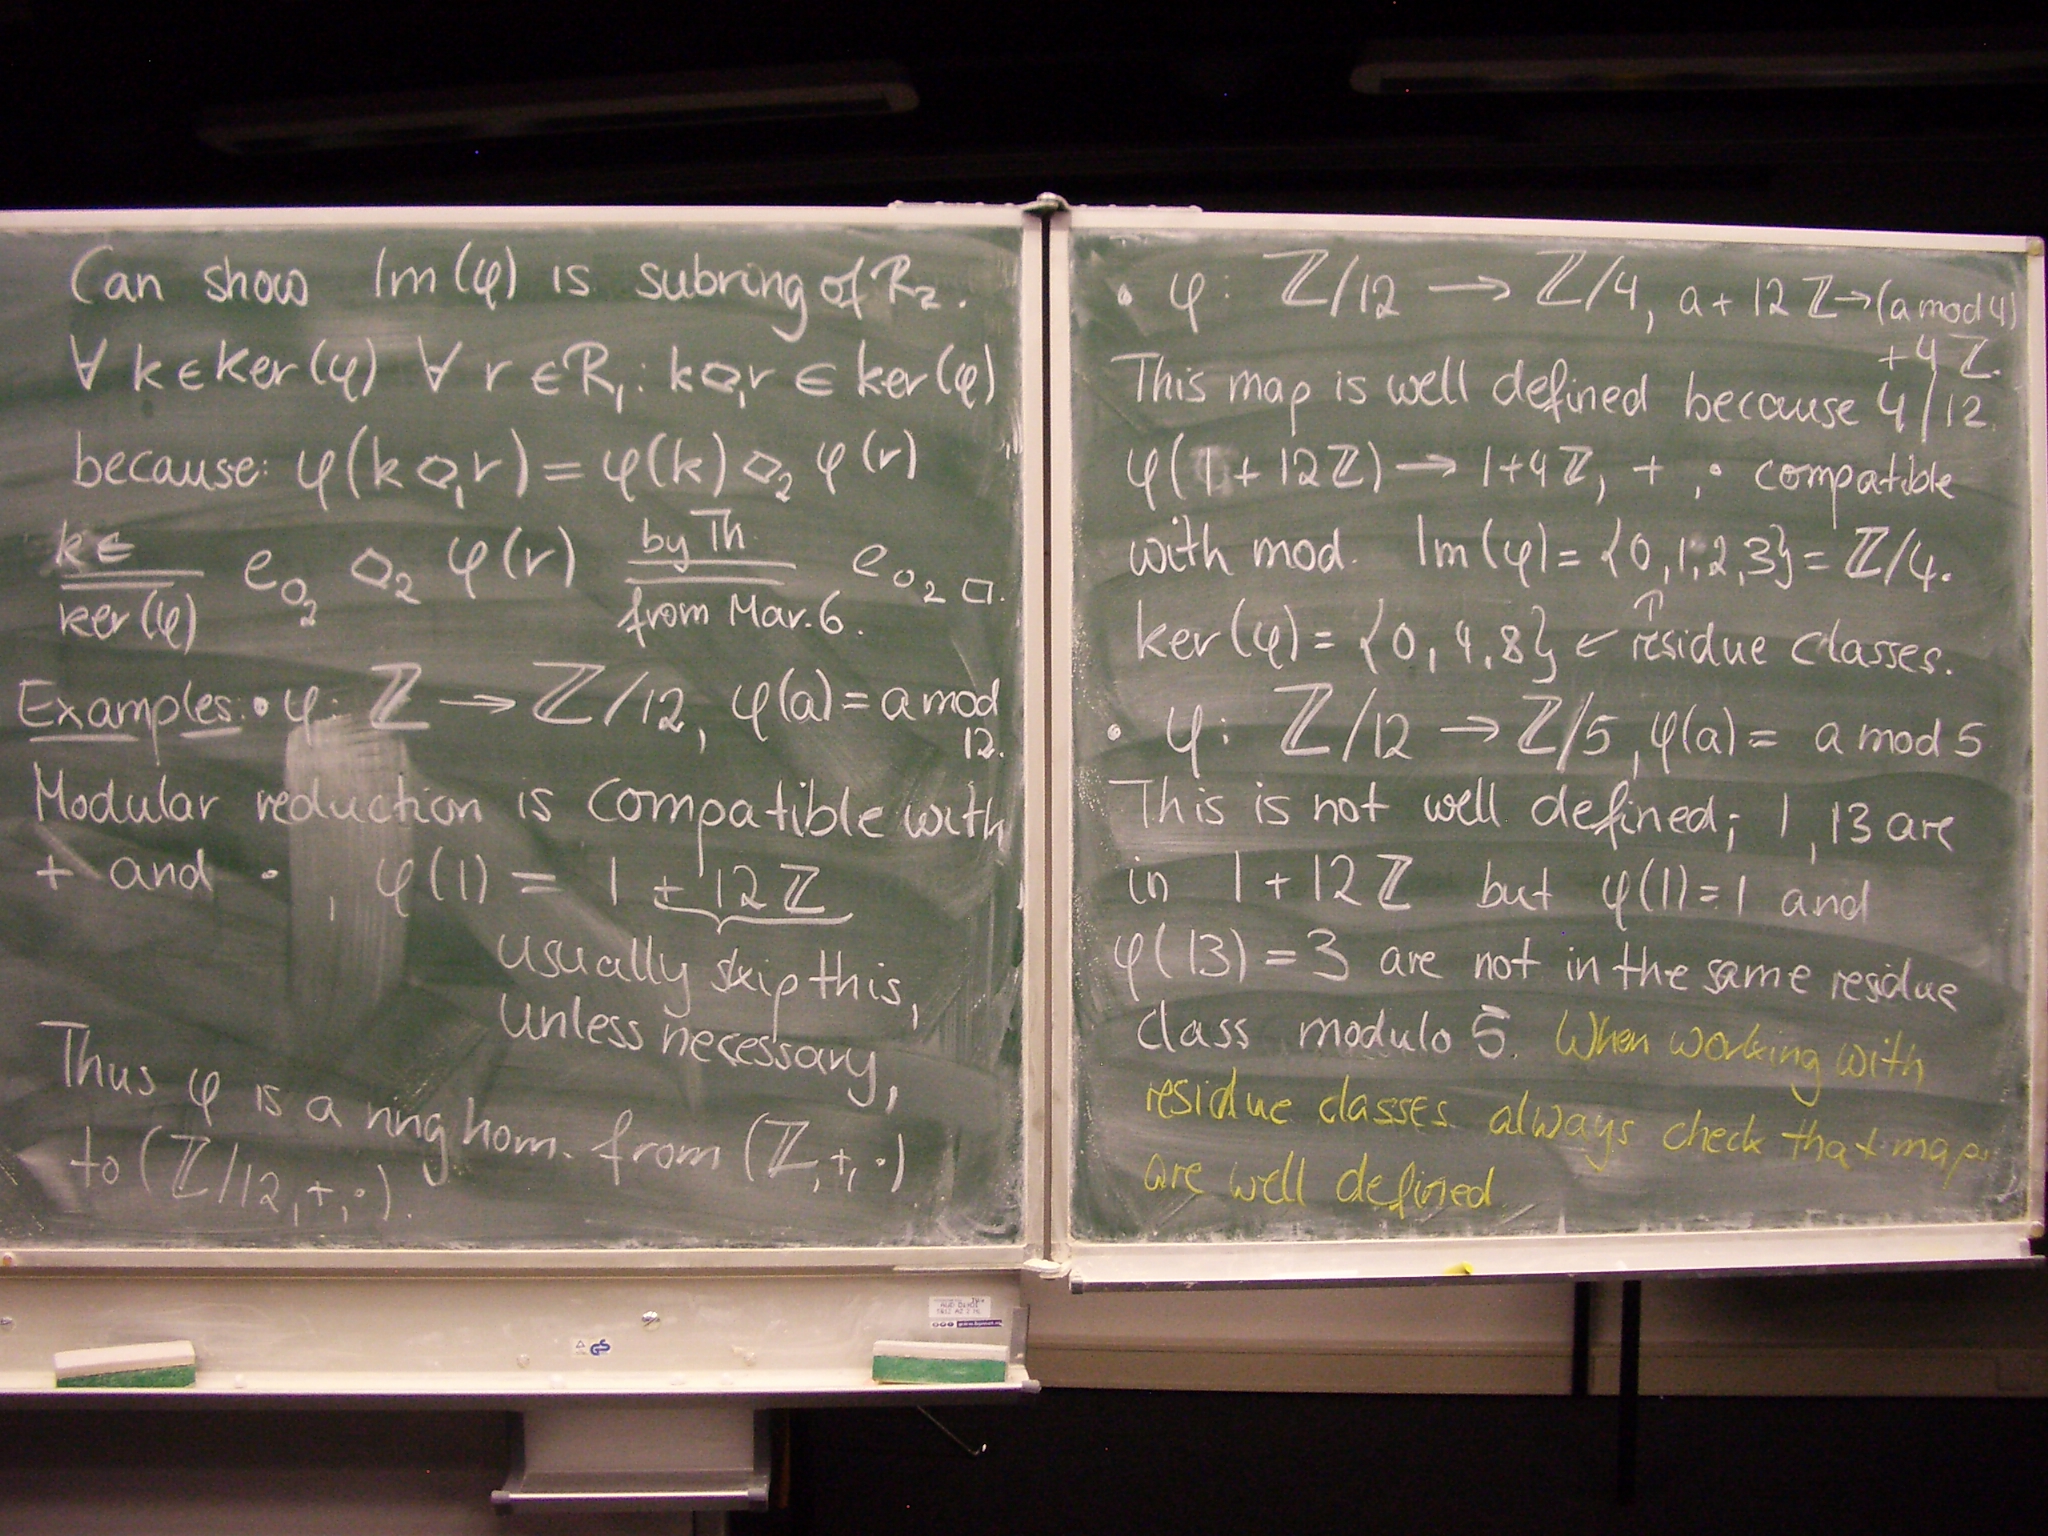 Can show Im(φ) is subring of R₂.
∀ k ∈ ker(φ) ∀ r ∈ R₁: k◇₁r ∈ ker(φ)
because: φ(k ◇₁ r) = φ(k) ◇₂ φ(r)
k ∈ ker(φ) = e_{0₂} ◇₂ φ(r) = by Th. from Mar. 6. e_{0₂} □.
Examples: • φ: ℤ → ℤ/12, φ(a) = a mod
12.
Modular reduction is compatible with
+ and ·, φ(1) = 1 + 12ℤ
usually skip this,
unless necessary,
Thus φ is a ring hom. from (ℤ,+,·)
to (ℤ/12,+,·).
• φ: ℤ/12 → ℤ/4, a + 12ℤ → (a mod 4)
+ 4ℤ.
This map is well defined because 4/12.
φ(1 + 12ℤ) → 1+4ℤ, +, · compatible
with mod. Im(φ) = {0,1,2,3} = ℤ/4.
ker(φ) = {0,4,8} ← ↑ residue classes.
• φ: ℤ/12 → ℤ/5, φ(a) = a mod 5
This is not well defined; 1, 13 are
in 1 + 12ℤ but φ(1)=1 and
φ(13) = 3 are not in the same residue
class modulo 5. When working with
residue classes always check that maps
are well defined